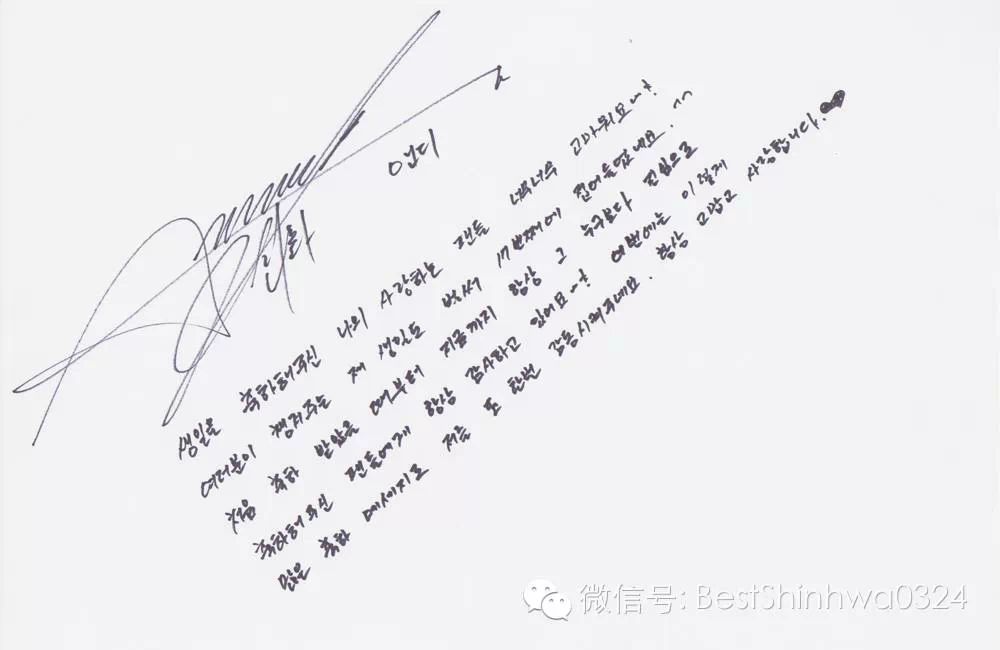 신화 앤디
생일을 축하해주신 나의 사랑하는 팬들 너무너무 고마워요~!
여러분이 챙겨주는 제 생일도 벌써 17번째에 접어들었네요. ^^
처음 축하 받았을 때부터 지금까지 항상 그 누구보다 진심으로
축하해주신 팬들에게 항상 감사하고 있어요~! 이번에는 이렇게
많은 축하 메세지로 저를 또 한번 감동시켜주네요. 항상 고맙고 사랑합니다.♥
微信号: BestShinhwa0324